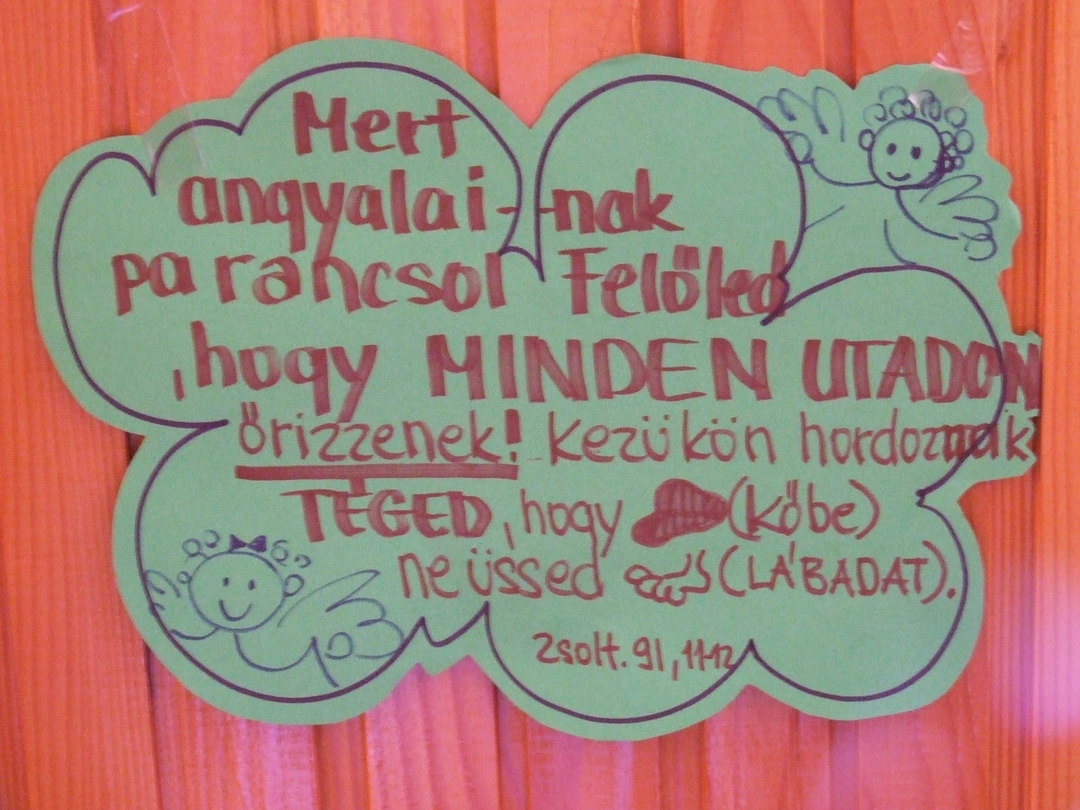 Mert
angyalai--nak
parancsol Felőled
,hogy MINDEN UTADON
őrizzenek! Kezükön hordoznak
TÉGED, hogy (kőbe)
ne üssed (LÁBADAT).
Zsolt. 91, 11-12